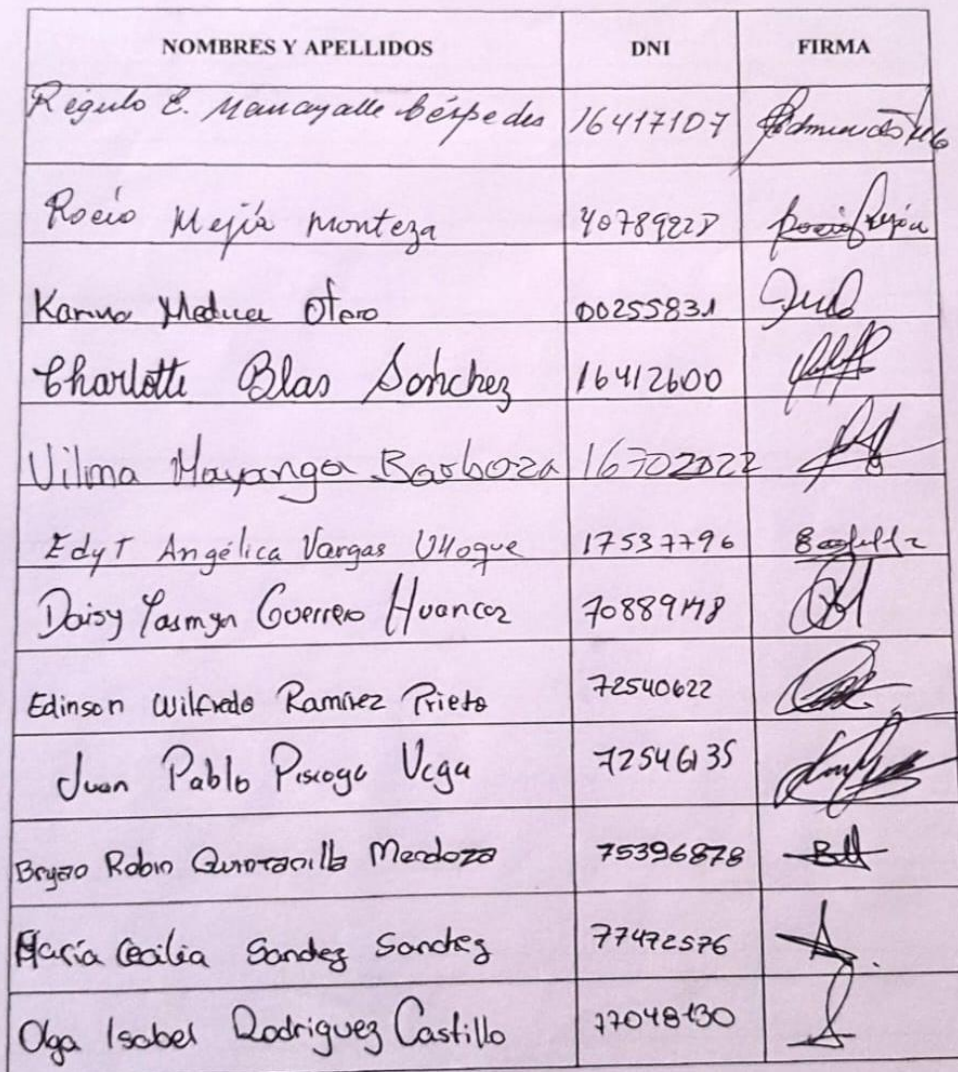 NOMBRES Y APELLIDOS DNI FIRMA
Régulo E. Mancayalle Céspedes 16417107
Rocío Mejía Monteza 40789228 Rocío Mejía
Karina Medina Otero 00255831
Charlotte Blas Sánchez 16412600
Vilma Mayanga Barboza 16702022
Edyt Angélica Vargas Ulloque 17537796
Daisy Yasmyn Guerrero Huancas 70889148
Edinson Wilfredo Ramírez Prieto 72540622
Juan Pablo Piscoya Vega 72546135
Bryan Robin Quintanilla Mendoza 75396878
María Cecilia Sandez Sandez 77472576
Olga Isabel Rodriguez Castillo 77048130